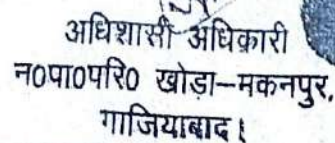 अधिशासी अधिकारी
न0पा0परि0 खोड़ा–मकनपुर,
गाजियाबाद।